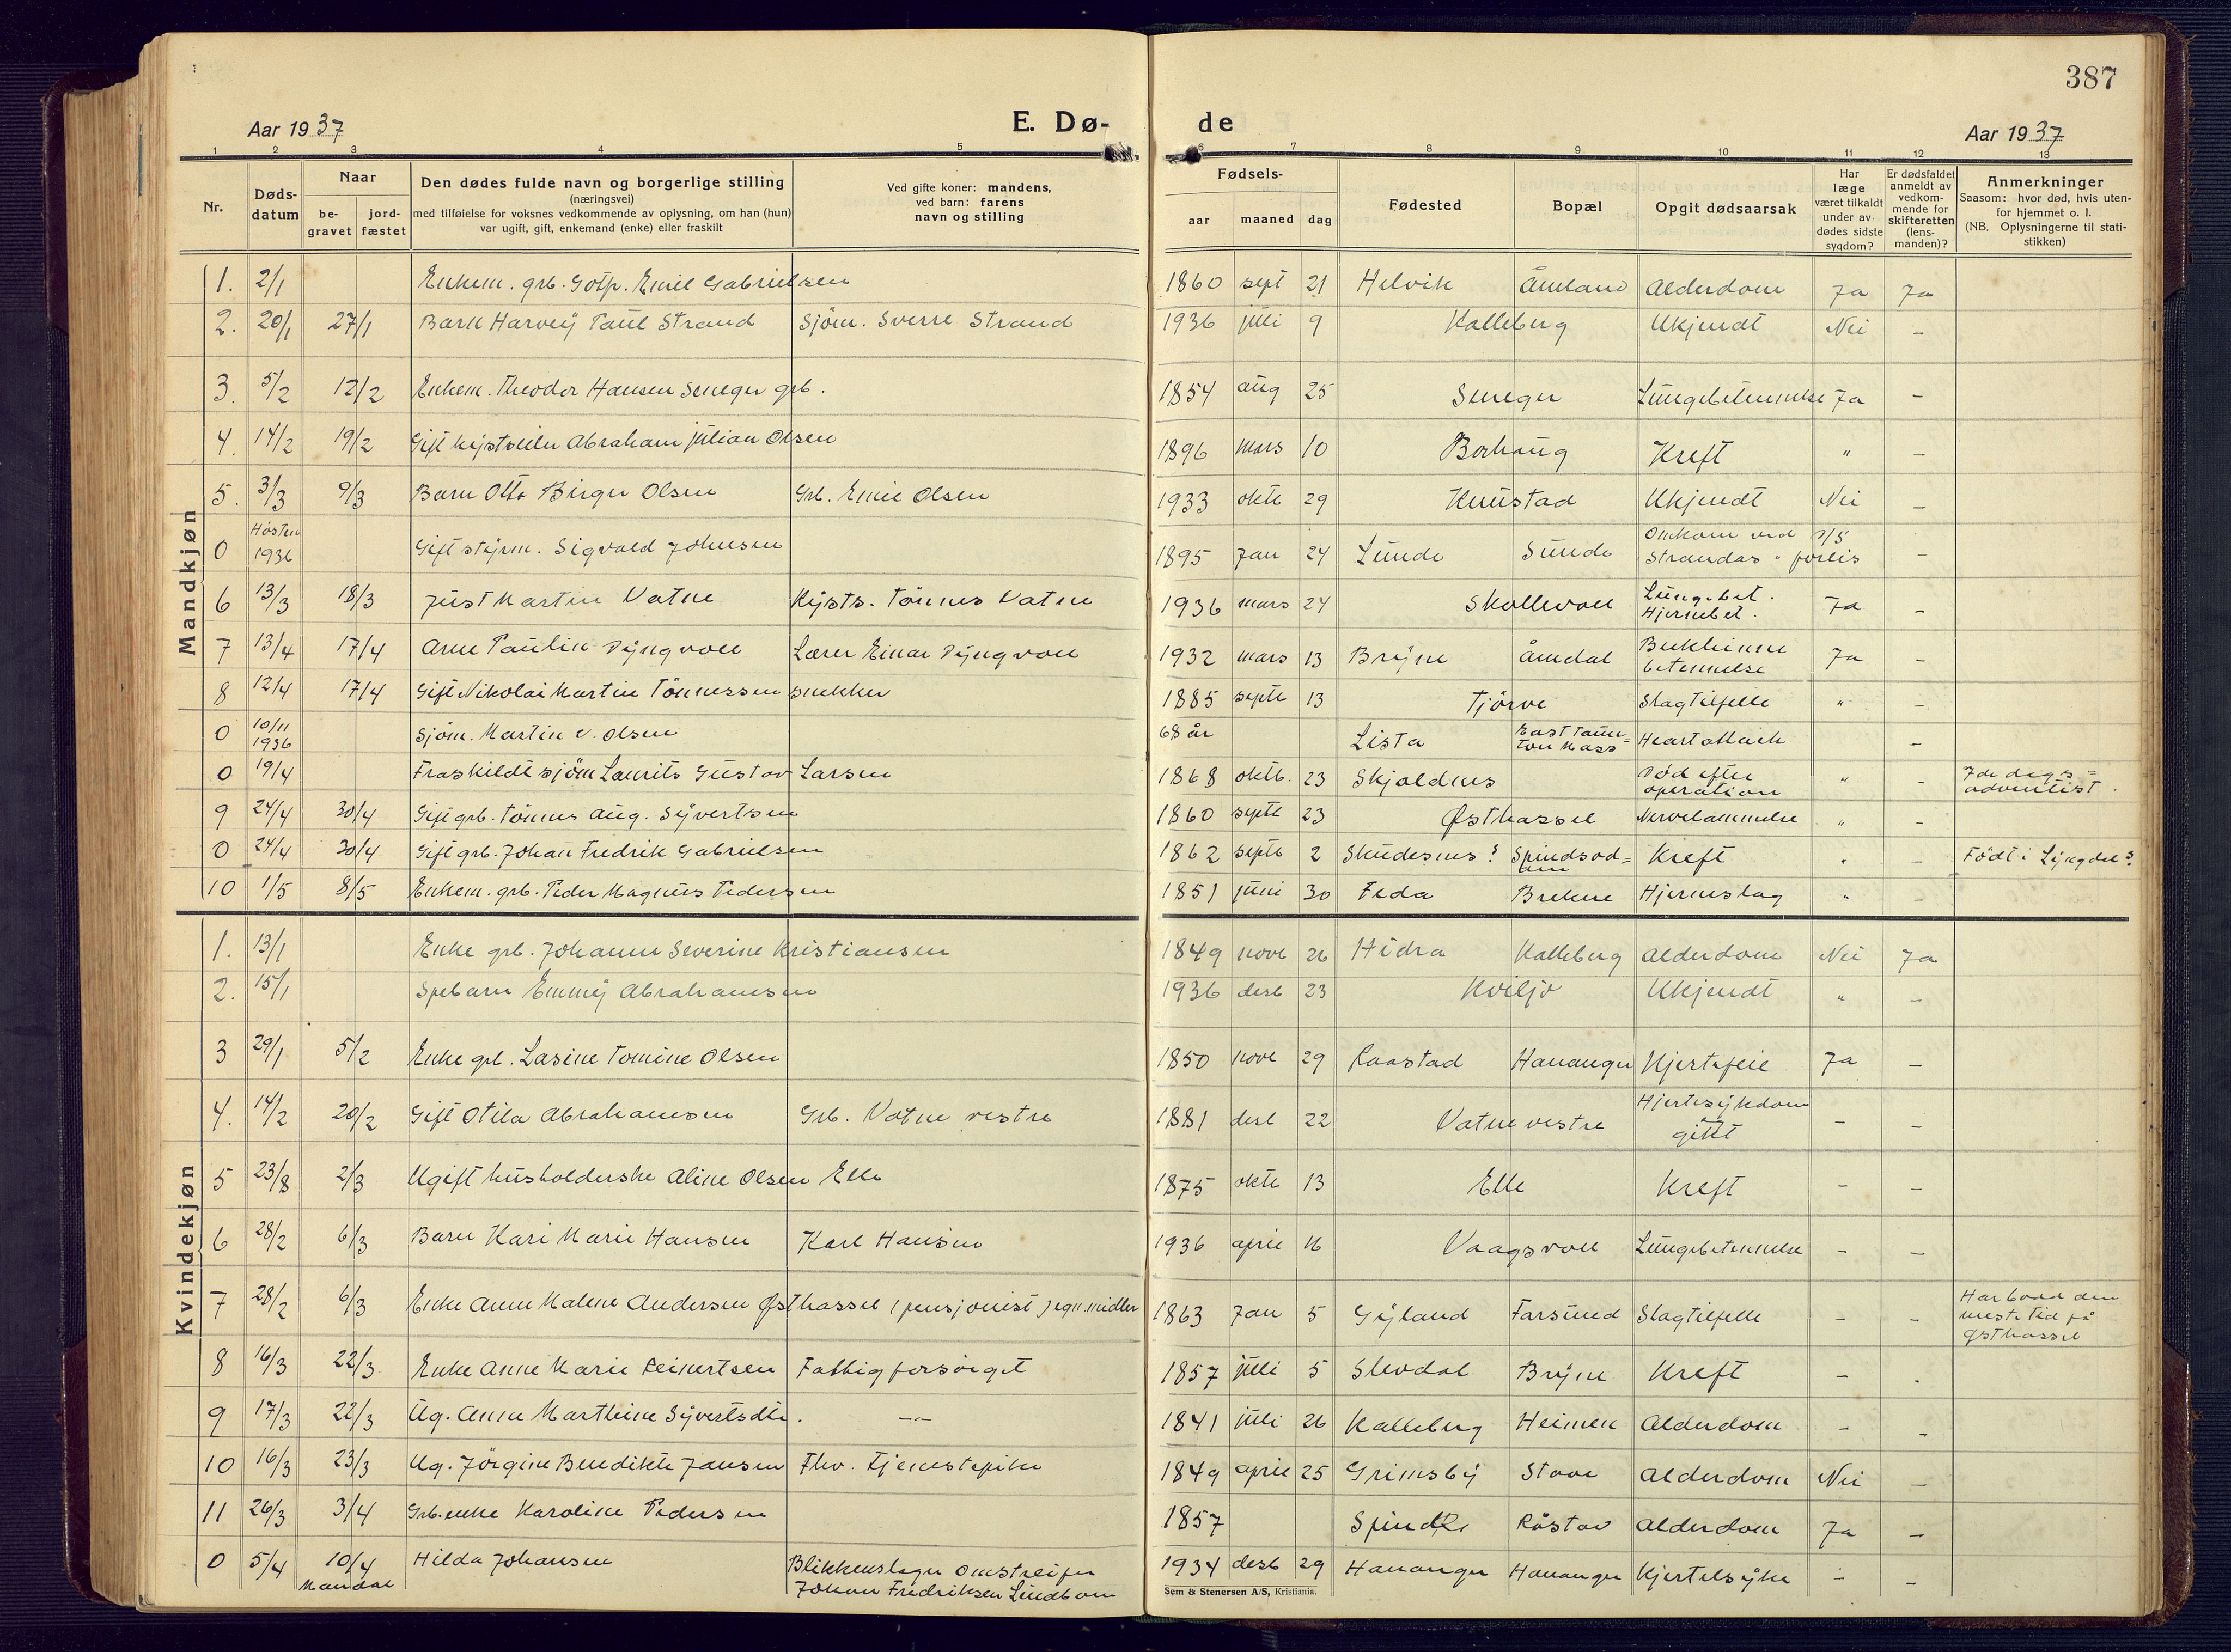 387
Aar 1937
E. Dø-
de
Aar 1937
1 2 3 4 5 6 7 8 9 10 11 12 13
Nr. | Døds-datum | Naar be-gravet | jord-fæstet | Den dødes fulde navn og borgerlige stilling (næringsvei) med tilføielse for voksnes vedkommende av oplysning, om han (hun) var ugift, gift, enkemand (enke) eller fraskilt | Ved gifte koner: mandens, ved barn: farens navn og stilling | Fødsels- aar | maaned | dag | Fødested | Bopæl | Opgit dødsaarsak | Har læge været tilkaldt under av dødes sidste sygdom? | Er dødsfaldet anmeldt av vedkom-mende for skifteretten (lens-manden)? | Anmerkninger Saasom: hvor død, hvis uten-for hjemmet o. l. (NB. Oplysningerne til stati-stikken)
Mandkjøn
1. 2/1 Enkem. grb. Gotfr. Emil Gabrielsen 1860 sept 21 Helvik Åmland Alderdom Ja Ja
2. 20/1 27/1 Barn Harvey Paul Strand Sjöm. Sverre Strand 1936 juli 9 Kalleberg Ukjendt Nei –
3. 5/2 12/2 Enkem. Theodor Hansen Meneger grb. 1854 aug 25 Lungebetennelse Ja –
4. 14/2 19/2 Gift Abraham Julian Olsen 1896 mars 10 Borhaug Kreft " –
5. 3/3 9/3 Barn Otto Birger Olsen Grb. Emil Olsen 1933 oktb 29 Knustad Ukjendt Nei –
0 Høsten 1936 Gift styrm. Sigvald Johnsen 1895 Jan 24 Lunde Sunde Omkom ved D/S Strandas " forlis –
6 13/3 18/3 Just Martin Vatne Kysts. Tönnes Vatne 1936 mars 24 Skollevoll Lungebet. Hjernebet. Ja –
7 13/4 17/4 Arne Paulin Dyngvoll Lærer Einar Dyngvoll 1932 mars 13 Bryne Åmdal Bukhinnebetennelse Ja –
8 12/4 17/4 Gift Nikolai Martin Tönnessen snekker 1885 septb 13 Tjörve Slagtilfelle " –
0 10/11 1936 Sjöm. Martin V. Olsen 68 år Lista East Taun=ton Mass= Heartattack –
0 19/4 Fraskildt sjöm Laurits Gustav Larsen 1868 oktb. 23 Skjoldnes Död efter operation " – 7de dags=adventist.
9 24/4 30/4 Gift grb. Tönnes Aug. Syvertsen 1860 septb 23 Østhassel Nervelammelse " –
0 24/4 30/4 Gift grb. Johan Fredrik Gabrielsen 1862 septb 2 Skudesnes? Kreft " – Födt i Lyngdal?
10 1/5 8/5 Enkem. grb. Peder Magnus Pedersen 1851 juni 30 Feda Brekne Hjerneslag " –
Kvindekjøn
1. 13/1 Enke grb. Johanne Severine Kristiansen 1849 novb 26 Hidra Kalleberg Alderdom Nei Ja
2. 15/1 Spebarn Emmy Abrahamsen 1936 desb 23 Kviljo Ukjendt " –
3 29/1 5/2 Enke grb. Lasine Tomine Olsen 1850 novb 29 Raastad Hananger Hjertefeil Ja –
4. 14/2 20/2 Gift Otila Abrahamsen Grb. Vatne vestre 1881 desb 22 Vatne vestre Hjertesykdom gikt – –
5 23/8 2/3 Ugift husholderske Aline Olsen Elle 1875 oktb 13 Elle Kreft – –
6 28/2 6/3 Barn Kari Marie Hansen Karl Hansen 1936 april 16 Vaagsvoll Lungebetennelse – –
7 28/2 6/3 Enke Anne Malene Andersen Østhassel (pensjonist) egn. midler 1863 Jan 5 Gyland Farsund Slagtilfelle – – Har bodd den meste tid på Østhassel
8 16/3 22/3 Enke Anne Marie Reinertsen Fattigforsörget 1857 juli 5 Slevdal Bryne Kreft – .
9 17/3 22/3 Ug. Anne Marthine Syvertsdtr. –"– 1841 juli 26 Kalleberg Heimen Alderdom – –
10 16/3 23/3 Ug. Jörgine Bendikte Jansen Fhv. Tjenestepike 1849 april 25 Grimsby Stave Alderdom Nei –
11 26/3 3/4 Grb.enke Karoline Pedersen 1857 Råstad Alderdom Ja –
0 5/4 10/4 Mandal Hilda Johansen Blikkenslager omstreifer Johan Fredriksen Lindbom 1934 desb 29 Hananger Hananger Kjertelsyke – –
Sem & Stenersen A/S, Kristiania.